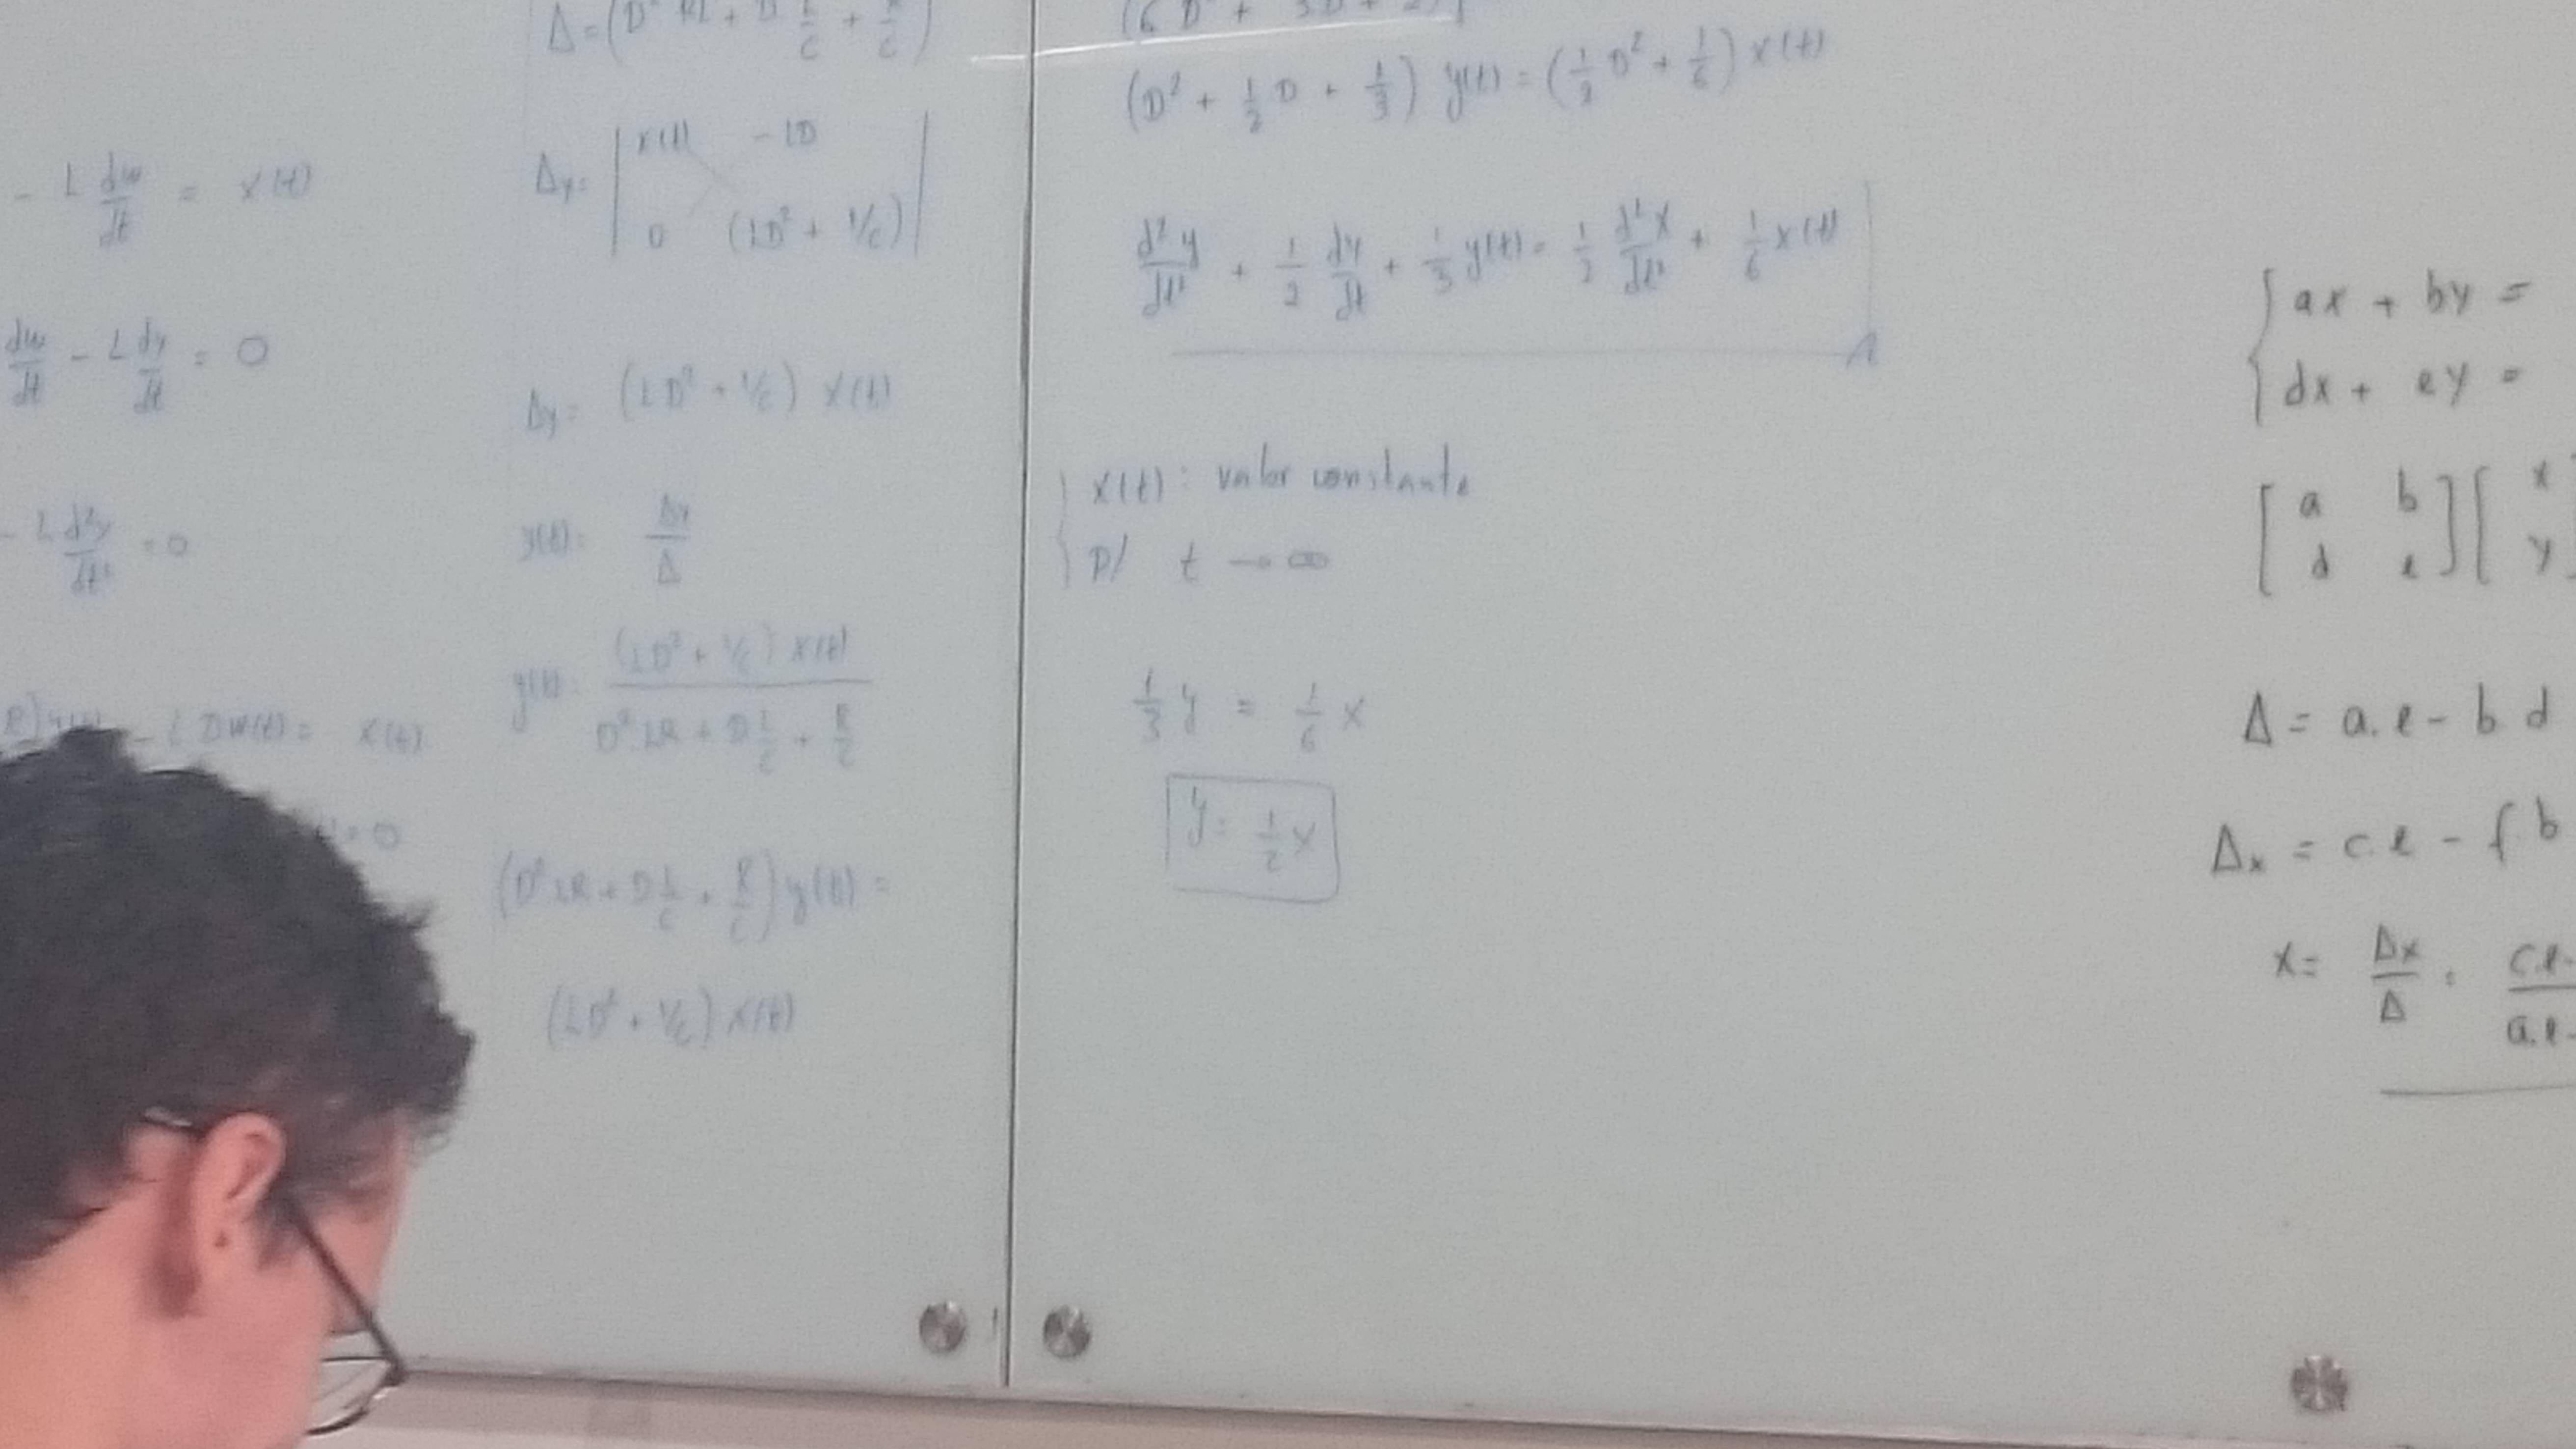 - L dw/dt = x(t)
dw/dt - L dy/dt = 0
- L d²y/dt² = 0
- L D w(t) = x(t)
= 0
Δy = | x(t) - LD |
| 0 (LD² + 1/C) |
Δy = (LD² + 1/C) x(t)
y(t) = Δy/Δ
y(t) = (LD² + 1/C) x(t) / D² LR + D L/C + R/C
(D² LR + D L/C + R/C) y(t) =
(LD² + 1/C) x(t)
(D² + 1/2 D + 1/3) y(t) = (1/2 D² + 1/6) x(t)
d²y/dt² + 1/2 dy/dt + 1/3 y(t) = 1/2 d²x/dt² + 1/6 x(t)
x(t) : valor constante
p/ t → ∞
1/3 y = 1/6 x
y = 1/2 x
{ ax + by =
dx + ey =
[ a b ] [ x
d e y ]
Δ = a.e - b d
Δx = c.e - f b
x = Δx/Δ = c.e- / a.e-